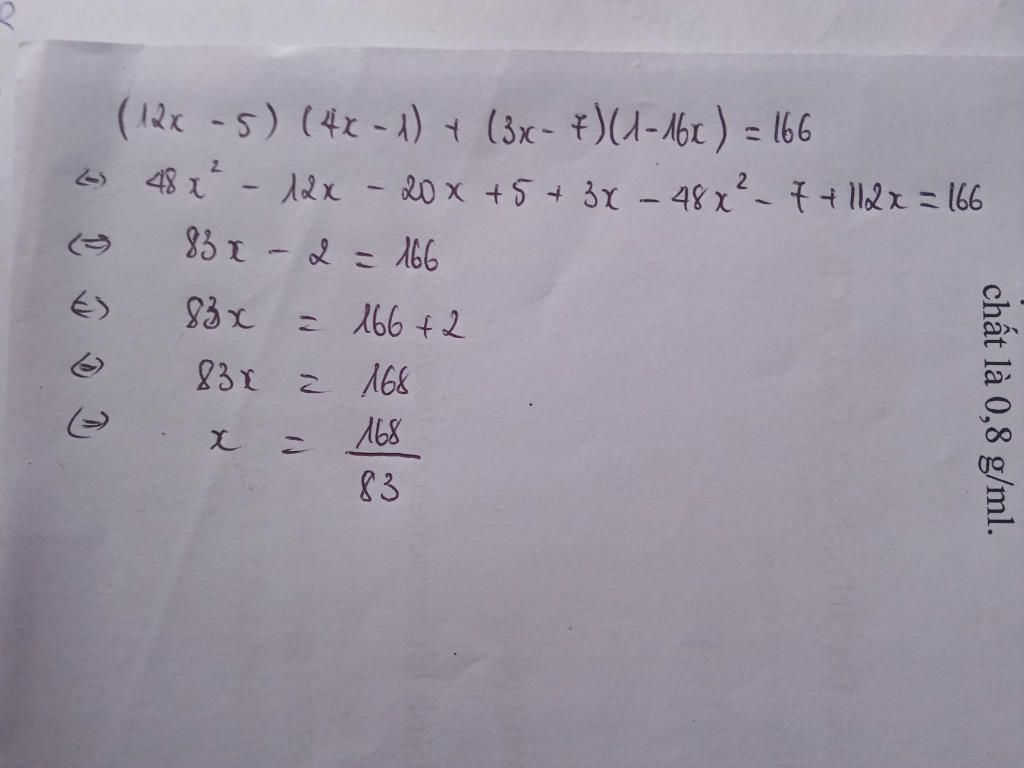 (12x - 5) (4x - 1) + (3x - 7)(1 - 16x) = 166
⇔ 48x² - 12x - 20x + 5 + 3x - 48x² - 7 + 112x = 166
⇔ 83x - 2 = 166
⇔ 83x = 166 + 2
⇔ 83x = 168
⇔ x = 168/83
chất là 0,8 g/ml.